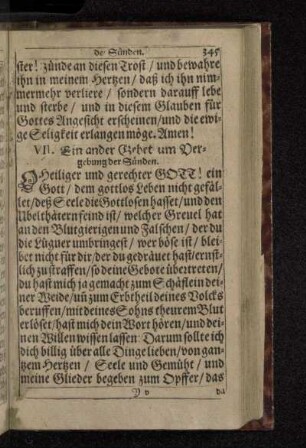 der Sünden. 345
ster! zünde an diesen Trost / und bewahre
ihn in meinem Hertzen / daß ich ihn nim-
mermehr verliere / sondern darauff lebe
und sterbe / und in diesem Glauben für
Gottes Angesicht erscheinen / und die ewi-
ge Seligkeit erlangen möge. Amen!
VII. Ein ander Gebet um Ver-
gebung der Sünden.
O Heiliger und gerechter GOTT! ein
Gott / dem gottlos Leben nicht gefäl-
let / deß Seele die Gottlosen hasset / und den
Ubelthätern feind ist / welcher Greuel hat
an den Blutgierigen und Falschen / der du
die Lügner umbringest / wer böse ist / blei-
bet nicht für dir / der du gedräuet hast / ernst-
lich zu straffen / so deine Gebote übertreten /
du hast mich ja gemacht zum Schäflein dei-
ner Weide / uñ zum Erbtheil deines Volcks
beruffen / mit deines Sohns theurem Blut
erlöset / hast mich dein Wort hören / und dei-
nen Willen wissen lassen: Darum sollte ich
dich billig über alle Dinge lieben / von gan-
tzem Hertzen / Seele und Gemüht / und
meine Glieder begeben zum Opffer / das
Y v du